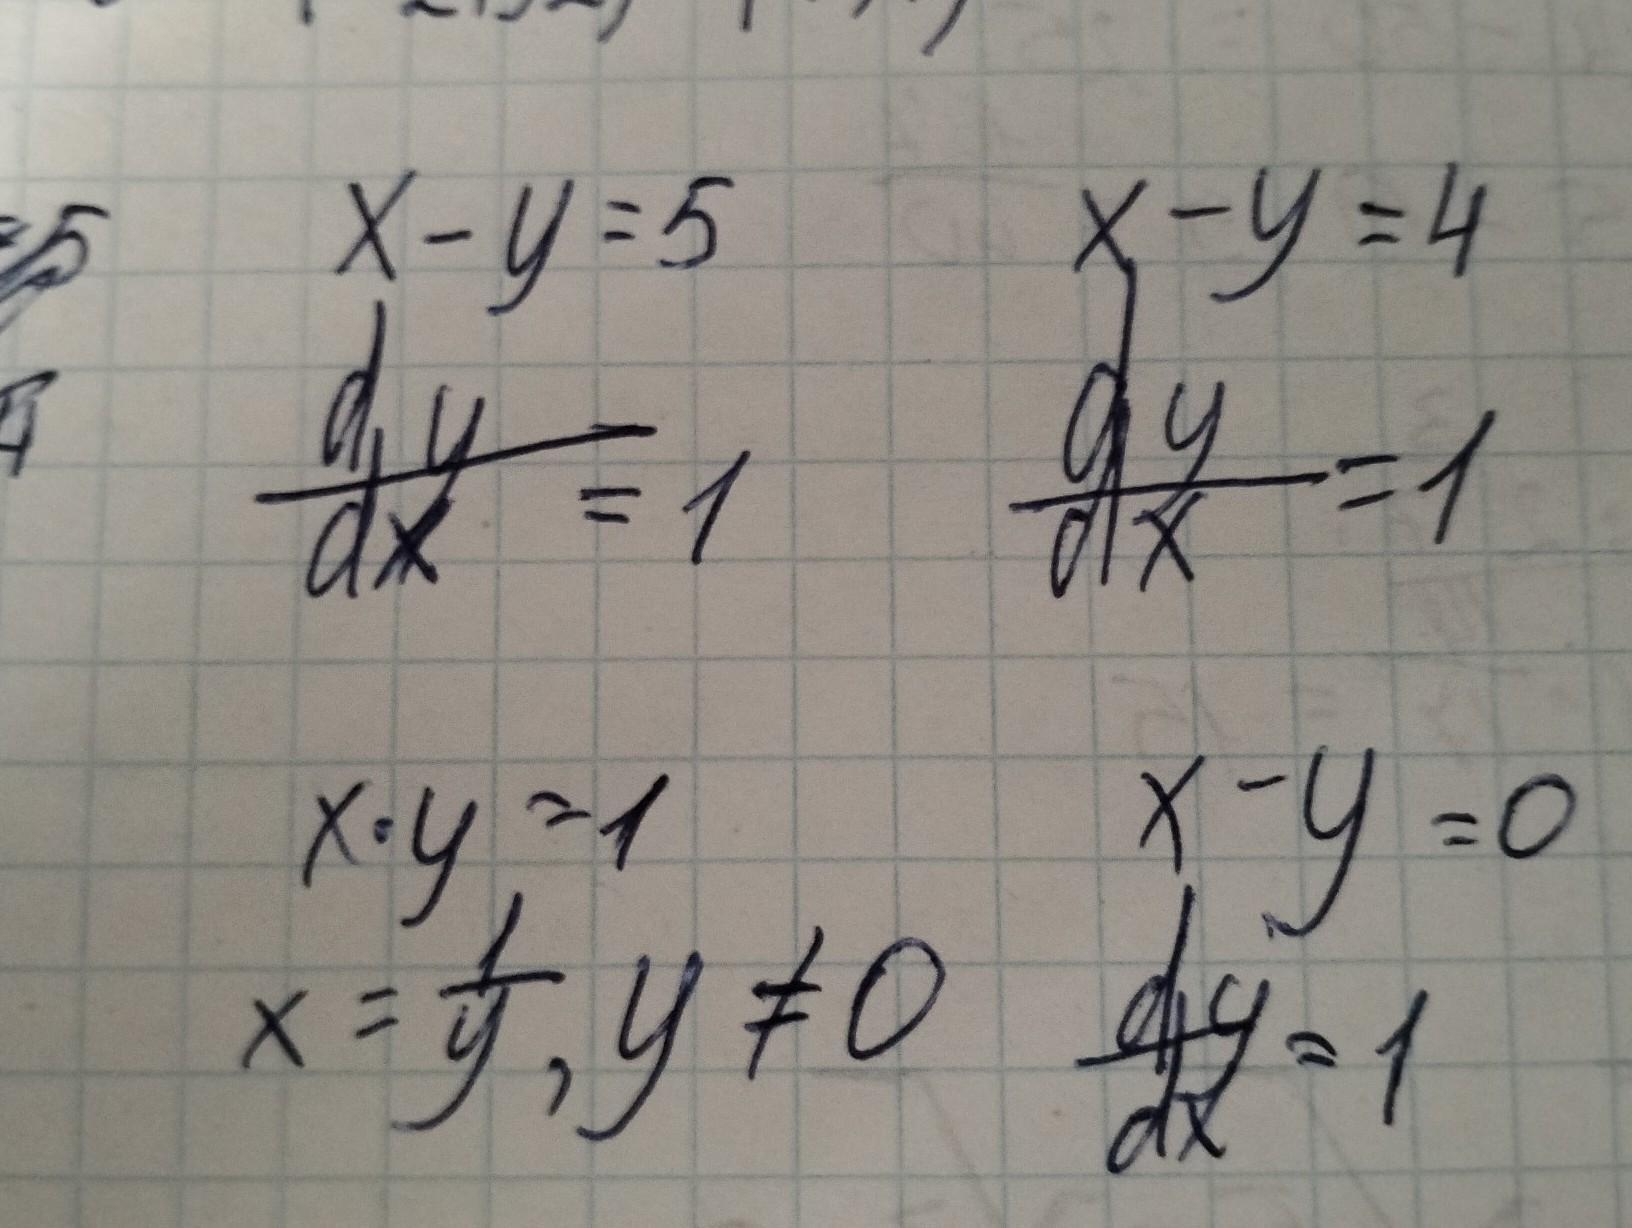 x - y = 5
dy/dx = 1
x - y = 4
dy/dx = 1
x · y = 1
x = 1/y, y ≠ 0
x - y = 0
dy/dx = 1